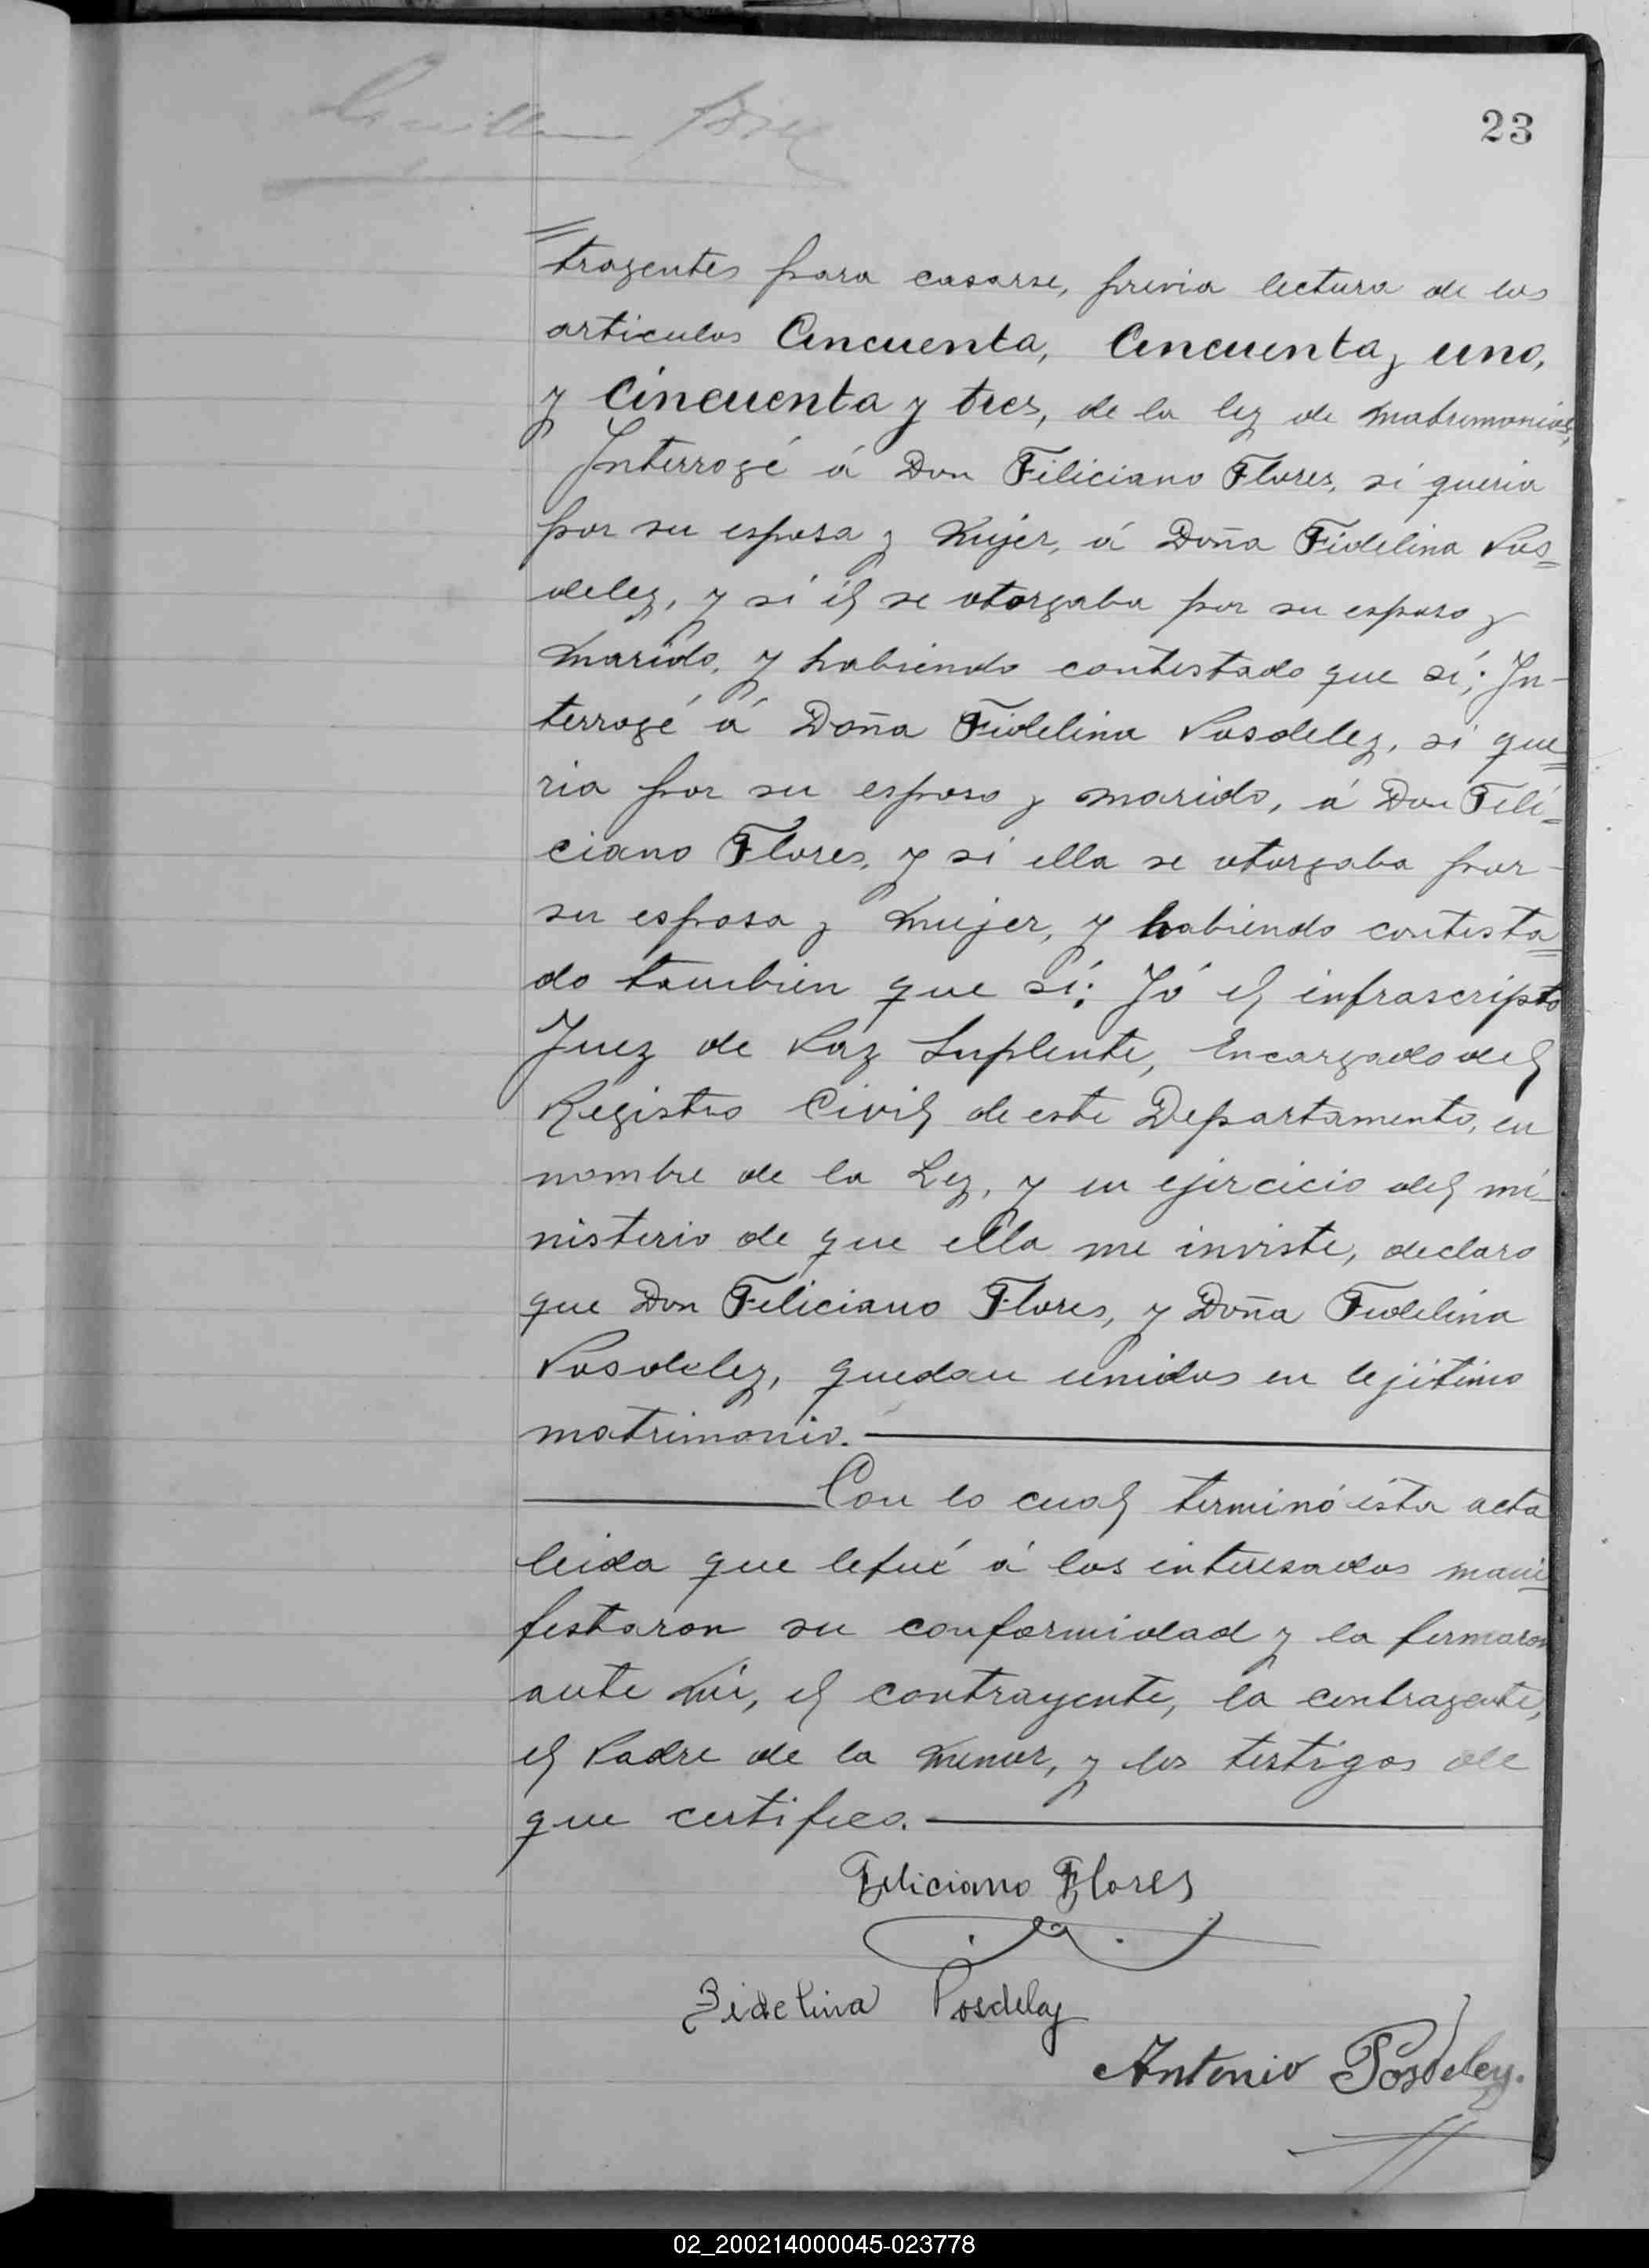 23
tragentes para casarse, previa lectura de los
articulos Cincuenta, Cincuenta y uno,
y Cincuenta y tres, de la ley de matrimonios,
Interrogé á Don Filiciano Flores, si queria
por su esposa y mujer, á Doña Fidelina Pos=
deley, y si él se otorgaba por su esposo y
marido, y habiendo contestado que sí; In-
terrogé á Doña Fidelina Posdeley, si que=
ria por su esposo y marido, á Don Feli=
ciano Flores, y si ella se otorgaba por
su esposa y mujer, y habiendo contesta=
do tambien que sí: Yó el infrascripto
Juez de Paz Suplente, Encargado del
Registro Civil de este Departamento, en
nombre de la Ley, y en ejercicio del mi-
nisterio de que ella me inviste, declaro
que Don Feliciano Flores, y Doña Fidelina
Posdeley, quedan unidos en lejitimo
matrimonio.
Con lo cual terminó ésta acta
leida que lefué á los interesados mani=
festaron su conformidad y la firmaron
ante mi, el contrayente, la contragente,
el Padre de la menor, y los testigos de
que certifico.
Feliciano Flores
Fidelina Posdeley
Antonio Posdeley.
02_200214000045-023778